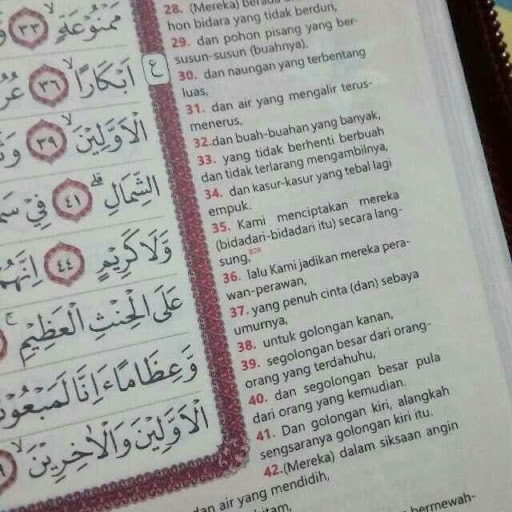 مَمْنُوْعَةٍ ۙ ٣٣
اَبْكَارًا ۙ ٣٦
ع
الْاَوَّلِيْنَ ۙ ٣٩
الشِّمَالِ ۗ ٤١ فِيْ
وَّلَا كَرِيْمٍ ٤٤ اِنَّهُمْ
عَلَى الْحِنْثِ الْعَظِيْمِ
وَّعِظَامًا ءَاِنَّا لَمَبْعُوْثُوْنَ
الْاَوَّلِيْنَ وَالْاٰخِرِيْنَ ۙ
28. (Mereka) berada
hon bidara yang tidak berduri,
29. dan pohon pisang yang ber-
susun-susun (buahnya).
30. dan naungan yang terbentang
luas,
31. dan air yang mengalir terus-
menerus,
32.dan buah-buahan yang banyak,
33. yang tidak berhenti berbuah
dan tidak terlarang mengambilnya,
34. dan kasur-kasur yang tebal lagi
empuk.
35. Kami menciptakan mereka
(bidadari-bidadari itu) secara lang-
sung,
36. lalu Kami jadikan mereka pera-
wan-perawan,
37. yang penuh cinta (dan) sebaya
umurnya,
38. untuk golongan kanan,
39. segolongan besar dari orang-
orang yang terdahuhu,
40. dan segolongan besar pula
dari orang yang kemudian.
41. Dan golongan kiri, alangkah
sengsaranya golongan kiri itu.
42.(Mereka) dalam siksaan angin
dan air yang mendidih,
hitam,
bermewah-